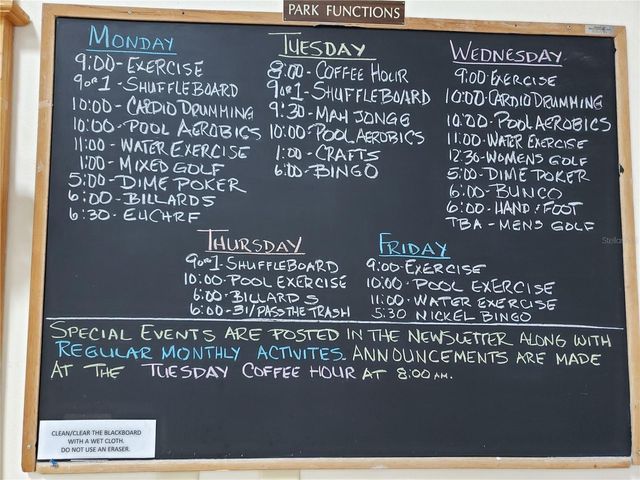 PARK FUNCTIONS
MONDAY
9:00-EXERCISE
9or1-SHUFFLEBOARD
10:00-CARDIO DRUMMING
10:00-POOL AEROBICS
11:00-WATER EXERCISE
1:00-MIXED GOLF
5:00-DIME POKER
6:00-BILLARDS
6:30-EUCHRE
TUESDAY
8:00-COFFEE HOUR
9or1-SHUFFLEBOARD
9:30-MAH JONGG
10:00-POOL AEROBICS
1:00-CRAFTS
6:00-BINGO
WEDNESDAY
9:00-EXERCISE
10:00-CARDIO DRUMMING
10:00-POOL AEROBICS
11:00-WATER EXERCISE
12:30-WOMENS GOLF
5:00-DIME POKER
6:00-BUNCO
6:00-HAND & FOOT
TBA-MENS GOLF
THURSDAY
9or1-SHUFFLEBOARD
10:00-POOL EXERCISE
6:00-BILLARDS
6:00-31/PASS THE TRASH
FRIDAY
9:00-EXERCISE
10:00-POOL EXERCISE
11:00-WATER EXERCISE
5:30 NICKEL BINGO
SPECIAL EVENTS ARE POSTED IN THE NEWSLETTER ALONG WITH
REGULAR MONTHLY ACTIVITES. ANNOUNCEMENTS ARE MADE
AT THE TUESDAY COFFEE HOUR AT 8:00 AM.
CLEAN/CLEAR THE BLACKBOARD
WITH A WET CLOTH.
DO NOT USE AN ERASER.